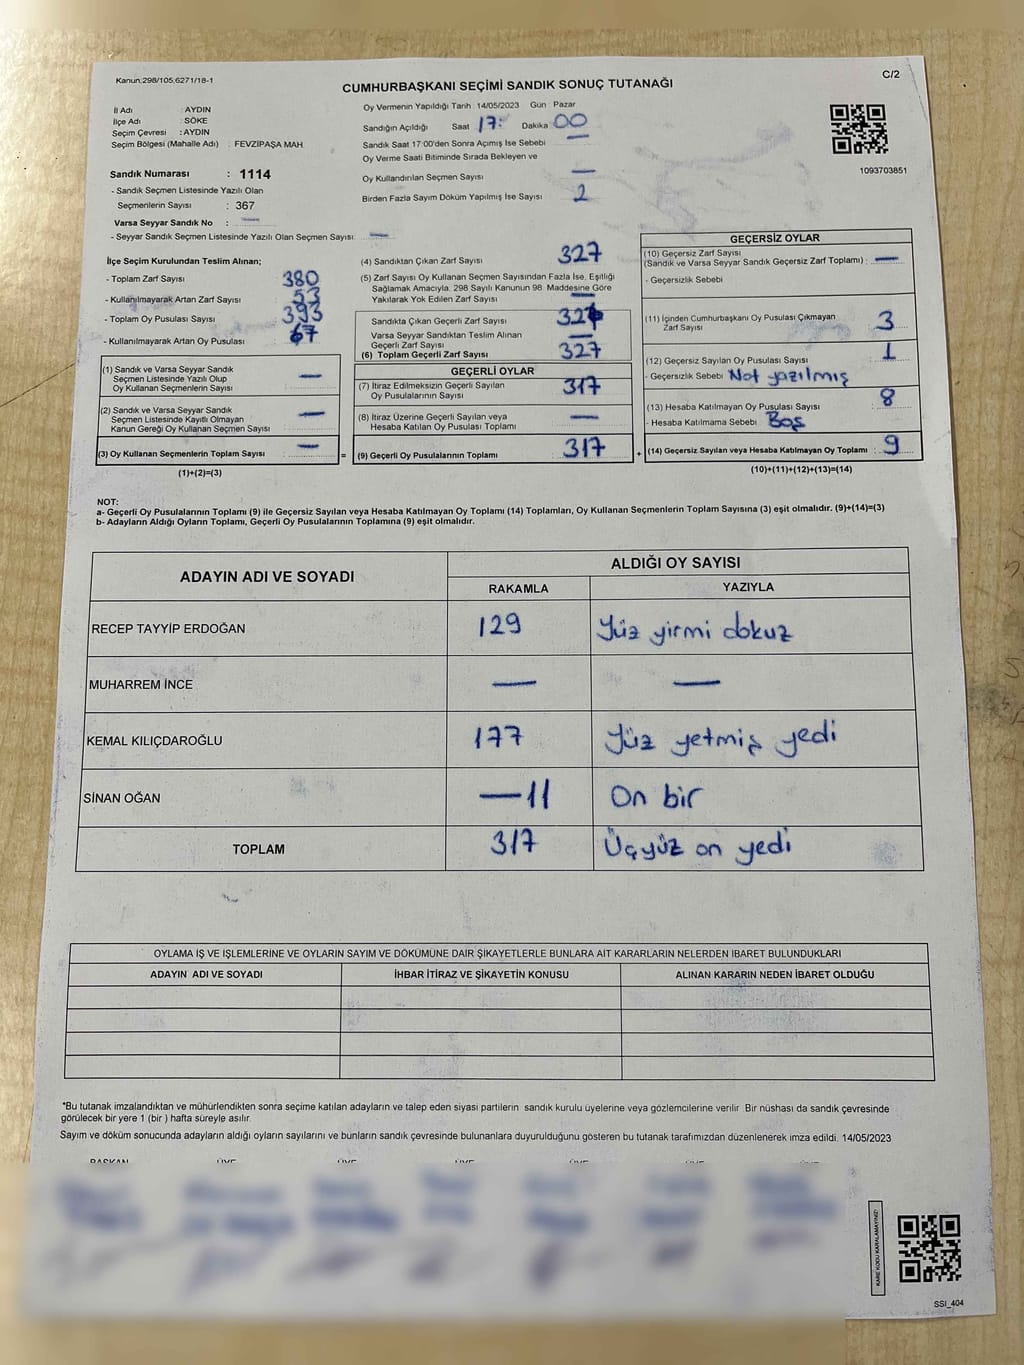 Kanun;298/105,6271/18-1
C/2
CUMHURBAŞKANI SEÇİMİ SANDIK SONUÇ TUTANAĞI
İl Adı : AYDIN
İlçe Adı : SÖKE
Seçim Çevresi : AYDIN
Seçim Bölgesi (Mahalle Adı) : FEVZİPAŞA MAH.
Oy Vermenin Yapıldığı Tarih : 14/05/2023 Gün Pazar
Sandığın Açıldığı Saat 17: Dakika 00
Sandık Saat 17:00'den Sonra Açımış İse Sebebi —
Oy Verme Saati Bitiminde Sırada Bekleyen ve
Oy Kullandırılan Seçmen Sayısı —
Birden Fazla Sayım Döküm Yapılmış İse Sayısı 2
1093703851
Sandık Numarası : 1114
- Sandık Seçmen Listesinde Yazılı Olan
Seçmenlerin Sayısı : 367
Varsa Seyyar Sandık No : —
- Seyyar Sandık Seçmen Listesinde Yazılı Olan Seçmen Sayısı: —
İlçe Seçim Kurulundan Teslim Alınan;
- Toplam Zarf Sayısı 380
- Kullanılmayarak Artan Zarf Sayısı 53
- Toplam Oy Pusulası Sayısı 393
- Kullanılmayarak Artan Oy Pusulası 67
(1) Sandık ve Varsa Seyyar Sandık
Seçmen Listesinde Yazılı Olup
Oy Kullanan Seçmenlerin Sayısı —
(2) Sandık ve Varsa Seyyar Sandık
Seçmen Listesinde Kayıtlı Olmayan
Kanun Gereği Oy Kullanan Seçmen Sayısı —
(3) Oy Kullanan Seçmenlerin Toplam Sayısı — =
(1)+(2)=(3)
(4) Sandıktan Çıkan Zarf Sayısı 327
(5) Zarf Sayısı Oy Kullanan Seçmen Sayısından Fazla İse, Eşitliği
Sağlamak Amacıyla, 298 Sayılı Kanunun 98. Maddesine Göre
Yakılarak Yok Edilen Zarf Sayısı —
Sandıkta Çıkan Geçerli Zarf Sayısı 327
Varsa Seyyar Sandıktan Teslim Alınan
Geçerli Zarf Sayısı —
(6) Toplam Geçerli Zarf Sayısı 327
GEÇERLİ OYLAR
(7) İtiraz Edilmeksizin Geçerli Sayılan
Oy Pusulalarının Sayısı 317
(8) İtiraz Üzerine Geçerli Sayılan veya
Hesaba Katılan Oy Pusulası Toplamı —
(9) Geçerli Oy Pusulalarının Toplamı 317 +
GEÇERSİZ OYLAR
(10) Geçersiz Zarf Sayısı
(Sandık ve Varsa Seyyar Sandık Geçersiz Zarf Toplamı) : —
- Geçersizlik Sebebi
(11) İçinden Cumhurbaşkanı Oy Pusulası Çıkmayan
Zarf Sayısı 3
(12) Geçersiz Sayılan Oy Pusulası Sayısı 1
- Geçersizlik Sebebi Not yazılmış
(13) Hesaba Katılmayan Oy Pusulası Sayısı 8
- Hesaba Katılmama Sebebi Boş
(14) Geçersiz Sayılan veya Hesaba Katılmayan Oy Toplamı : 9
(10)+(11)+(12)+(13)=(14)
NOT:
a- Geçerli Oy Pusulalarının Toplamı (9) ile Geçersiz Sayılan veya Hesaba Katılmayan Oy Toplamı (14) Toplamları, Oy Kullanan Seçmenlerin Toplam Sayısına (3) eşit olmalıdır. (9)+(14)=(3)
b- Adayların Aldığı Oyların Toplamı, Geçerli Oy Pusulalarının Toplamına (9) eşit olmalıdır.
ADAYIN ADI VE SOYADI ALDIĞI OY SAYISI
RAKAMLA YAZIYLA
RECEP TAYYİP ERDOĞAN 129 Yüz yirmi dokuz
MUHARREM İNCE — —
KEMAL KILIÇDAROĞLU 177 Yüz yetmiş yedi
SİNAN OĞAN —11 On bir
TOPLAM 317 Üçyüz on yedi
OYLAMA İŞ VE İŞLEMLERİNE VE OYLARIN SAYIM VE DÖKÜMÜNE DAİR ŞİKAYETLERLE BUNLARA AİT KARARLARIN NELERDEN İBARET BULUNDUKLARI
ADAYIN ADI VE SOYADI İHBAR İTİRAZ VE ŞİKAYETİN KONUSU ALINAN KARARIN NEDEN İBARET OLDUĞU
*Bu tutanak imzalandıktan ve mühürlendikten sonra seçime katılan adayların ve talep eden siyasi partilerin sandık kurulu üyelerine veya gözlemcilerine verilir. Bir nüshası da sandık çevresinde
görülecek bir yere 1 (bir ) hafta süreyle asılır.
Sayım ve döküm sonucunda adayların aldığı oyların sayılarını ve bunların sandık çevresinde bulunanlara duyurulduğunu gösteren bu tutanak tarafımızdan düzenlenerek imza edildi. 14/05/2023
BAŞKAN ÜYE ÜYE ÜYE ÜYE ÜYE ÜYE
KARE KODU KARALAMAYINIZ!
SSI_404